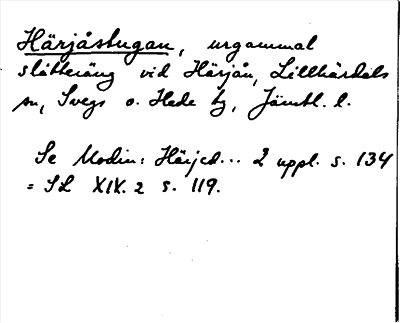 Härjåstugan, urgammal
slåtteräng vid Härjån, Lillhärdals
sn, Svegs o. Hede tg, Jämtl. l.
Se Modin: Härjed... 2 uppl. s. 134
= SL XIX. 2 s. 119.